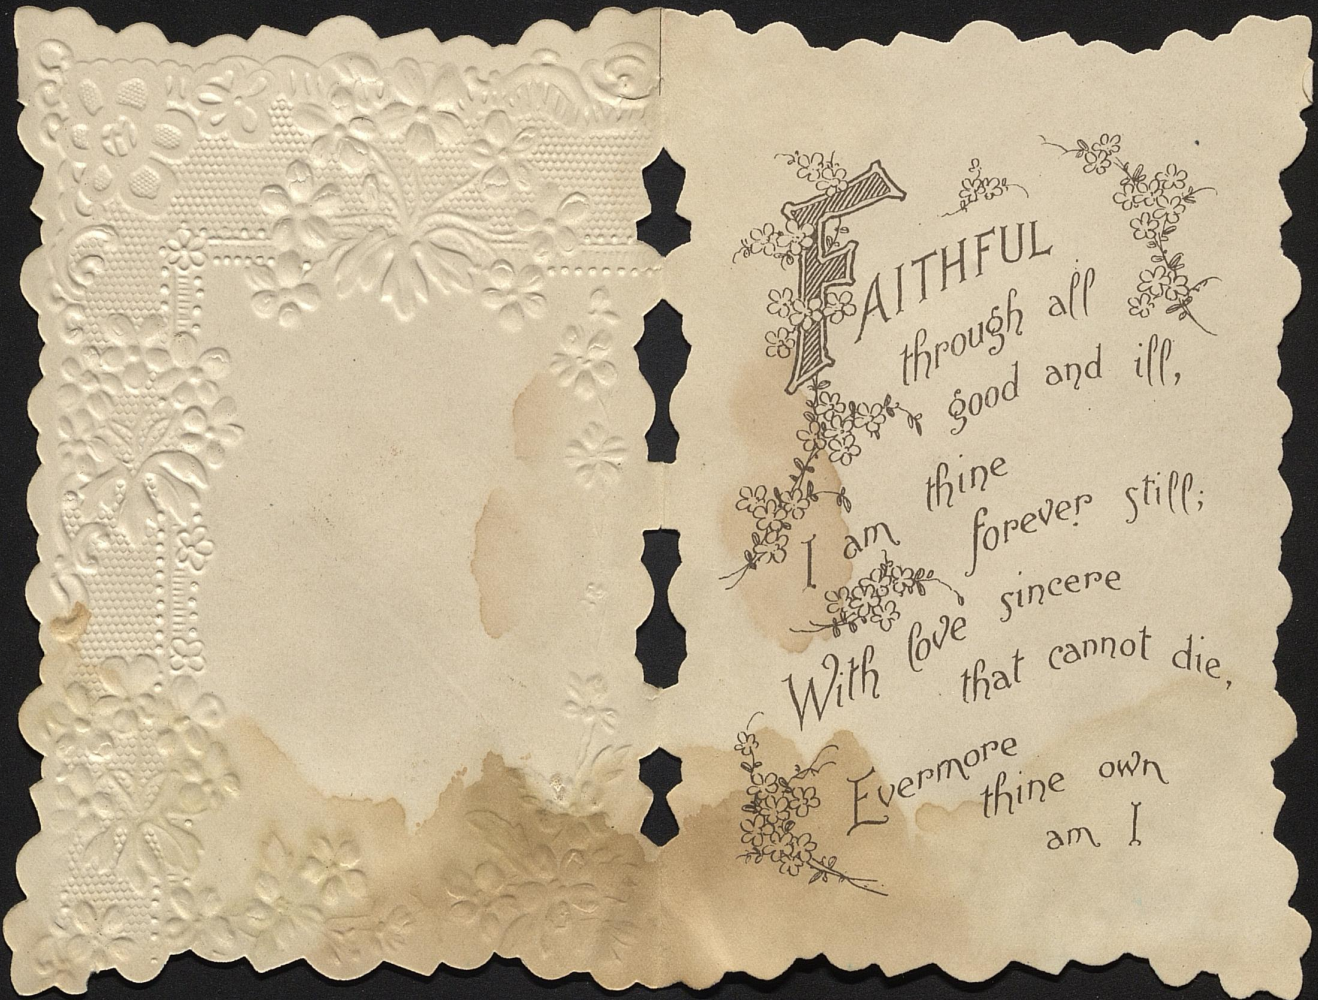 FAITHFUL
through all
good and ill,
I am thine
forever still;
With love sincere
that cannot die,
Evermore
thine own
am I